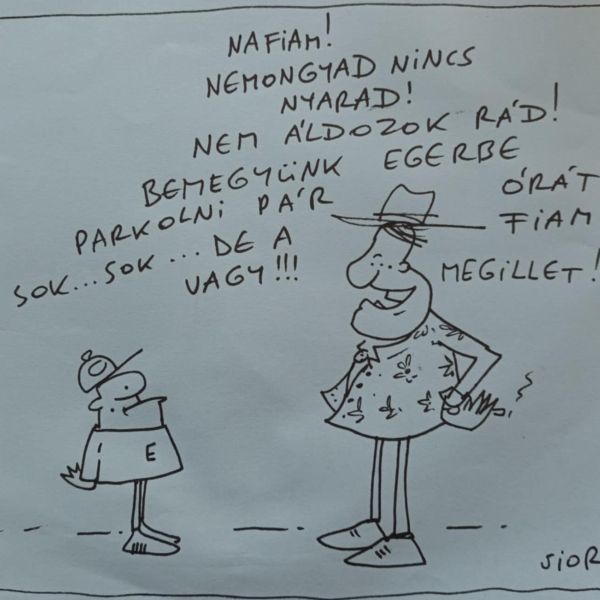 NAFIAM!
NEMONGYAD NINCS
NYARAD!
NEM ÁLDOZOK RÁD!
BEMEGYÜNK EGERBE
PARKOLNI PÁR ÓRÁT
SOK...SOK... DE A FIAM
VAGY!!! MEGILLET!
E
SIOR